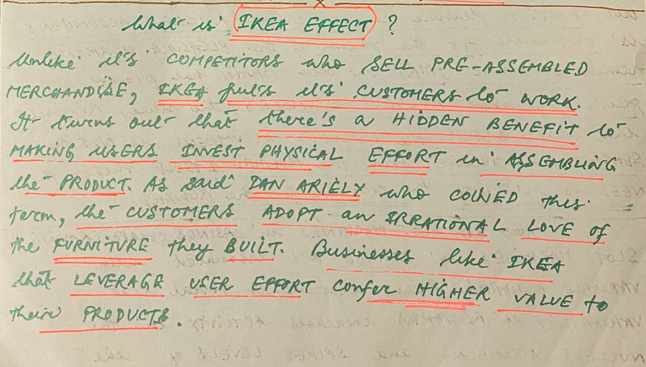 What is IKEA EFFECT ?
Unlike it's COMPETITORS who SELL PRE-ASSEMBLED
MERCHANDISE, IKEA puts it's CUSTOMERS to WORK.
It turns out that there's a HIDDEN BENEFIT to
MAKING USERS INVEST PHYSICAL EFFORT in ASSEMBLING
the PRODUCT. As said DAN ARIELY who coined this
term, the CUSTOMERS ADOPT an IRRATIONAL LOVE of
the FURNITURE they BUILT. Businesses like IKEA
that LEVERAGE USER EFFORT confer HIGHER VALUE to
their PRODUCTS.